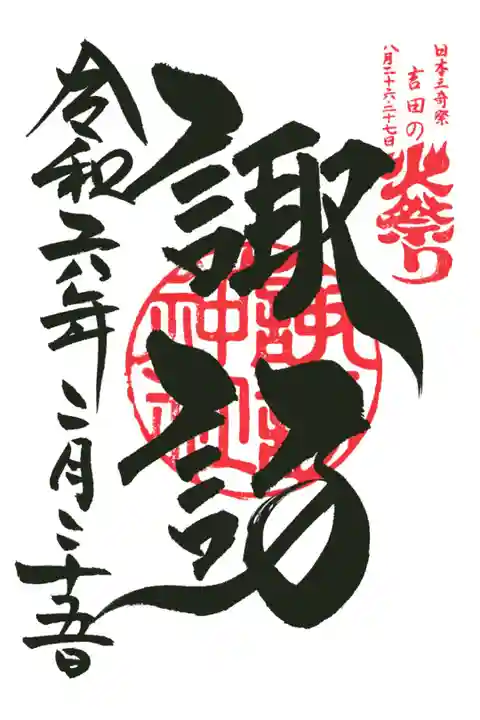 日本三奇祭
吉田の
火祭り
八月二十六・二十七日
諏訪
諏訪神社
令和六年二月二十五日